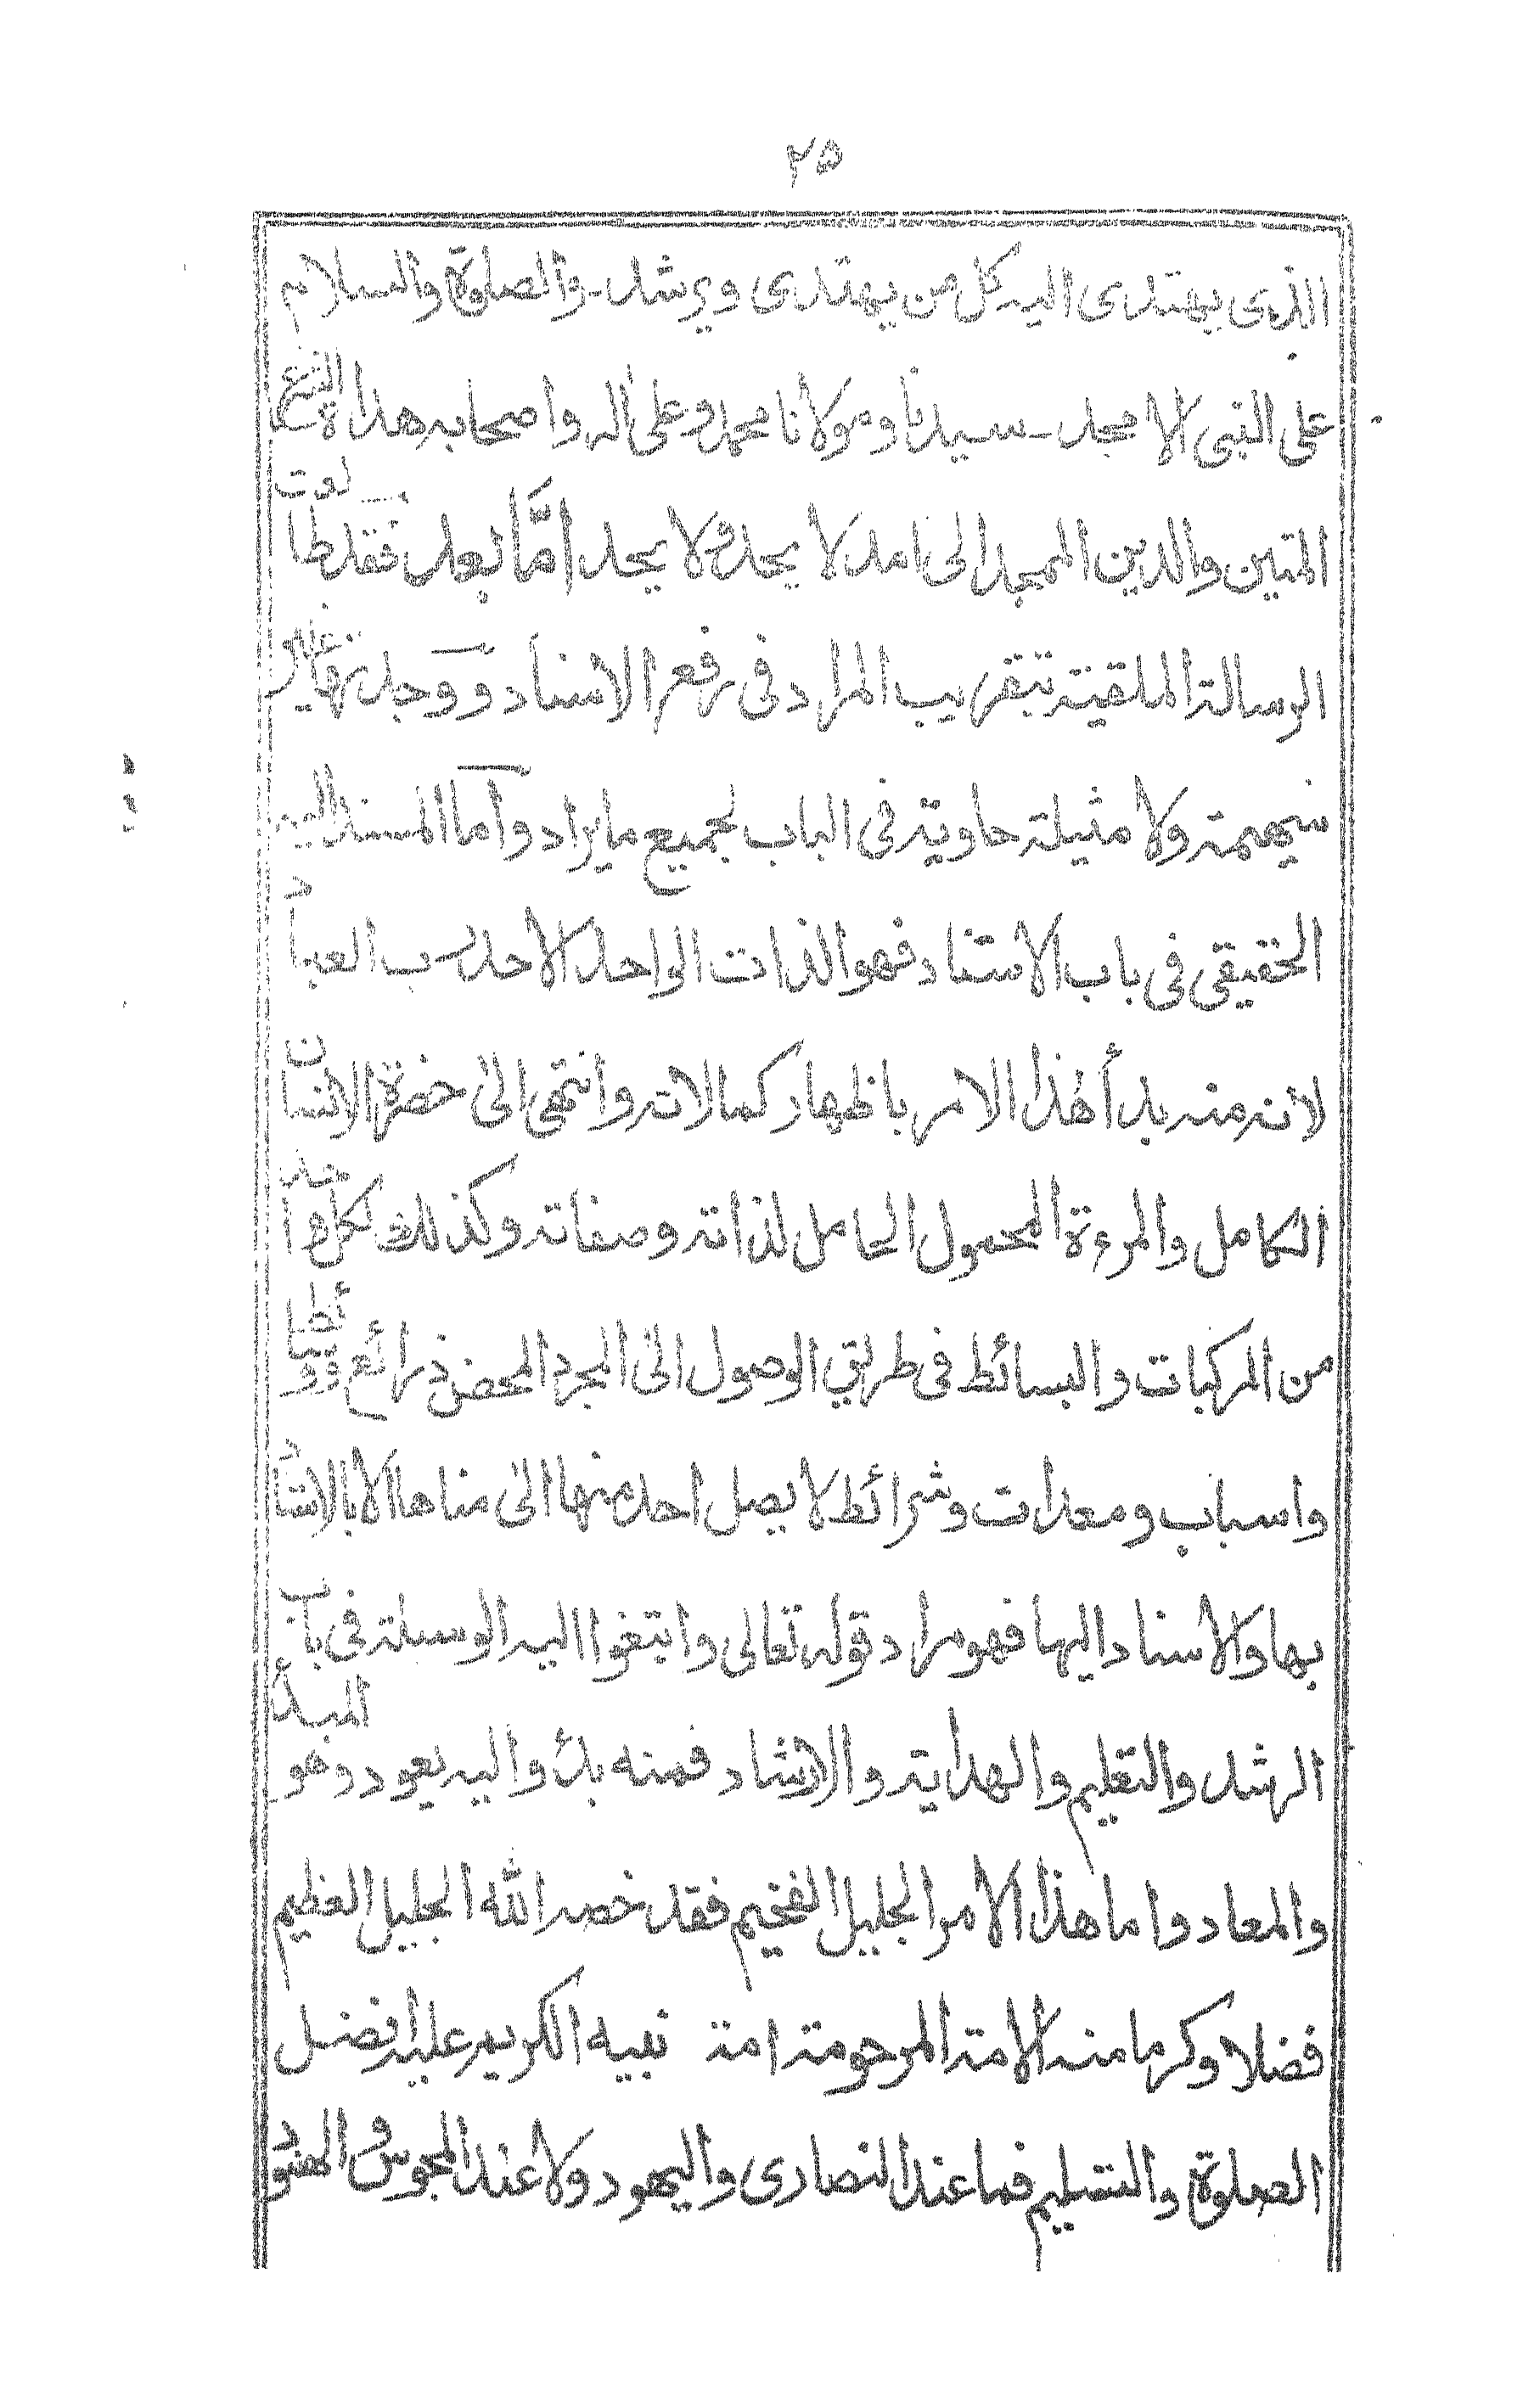 ۲۵
الذی یهتدی الیه کل من یهتدی و یرشد۔ والصلوة والسلام
علی النبی الامجد۔ سیدنا ومولانا محمد وعلی اله واصحابه هداة الشرع
المتین والدین الممجد الی امد لا یحد ولا یجد امّا بعد فقد طالعت
الرسالة الملقبة بتقریب المراد فی رفع الاسناد ووجدتها غیر
سهیمة ولا مثیلة حاویة فی الباب لجمیع مایراد واما المسند الیه
الحقیقی فی باب الاستناد فهو الذات الواحد الاحد رب العباد
لانه منه بدأ هٰذا الامر باظهار کمالاته وانتهی الیٰ حضرة الانسان
الکامل والمرءة المحمول الحامل لذاته وصفاته وکذلك لکل واحد
من المرکبات والبسائط فی طریق الوصول الیٰ المجرد المحض ذرائع ووسائط
واسباب ومعدات وشرائط لا یصل احد منها الیٰ مناها الا بالاستناد
بها والاسناد الیها فهو مراد قوله تعالی وابتغوا الیه الوسیلة فی باب
الرشد والتعلیم والهدایة والارشاد فمنه بدأ والیه یعود وهو المبدأ
والمعاد واما هذا الامر الجلیل الفخیم فقد خصه الله الجلیل العظیم
فضلا وکرما منه الامة المرحومة امة نبیه الکریم علیه افضل
الصلوة والتسلیم فما عند النصاری والیهود ولا عند المجوس والهنود